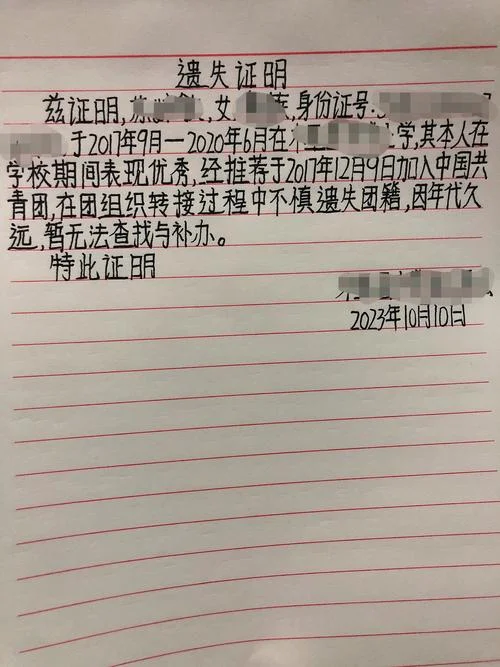 遗失证明
兹证明,女,身份证号:
于2017年9月—2020年6月在学,其本人在
学校期间表现优秀,经推荐于2017年12月9日加入中国共
青团,在团组织转接过程中不慎遗失团籍,因年代久
远,暂无法查找与补办。
特此证明
2023年10月10日